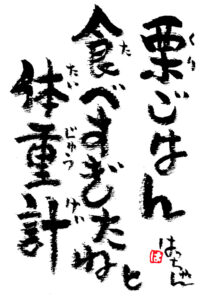 栗ごはん
食べすぎたねと
体重計
はっちゃん
くり
た
たいじゅうけい
は